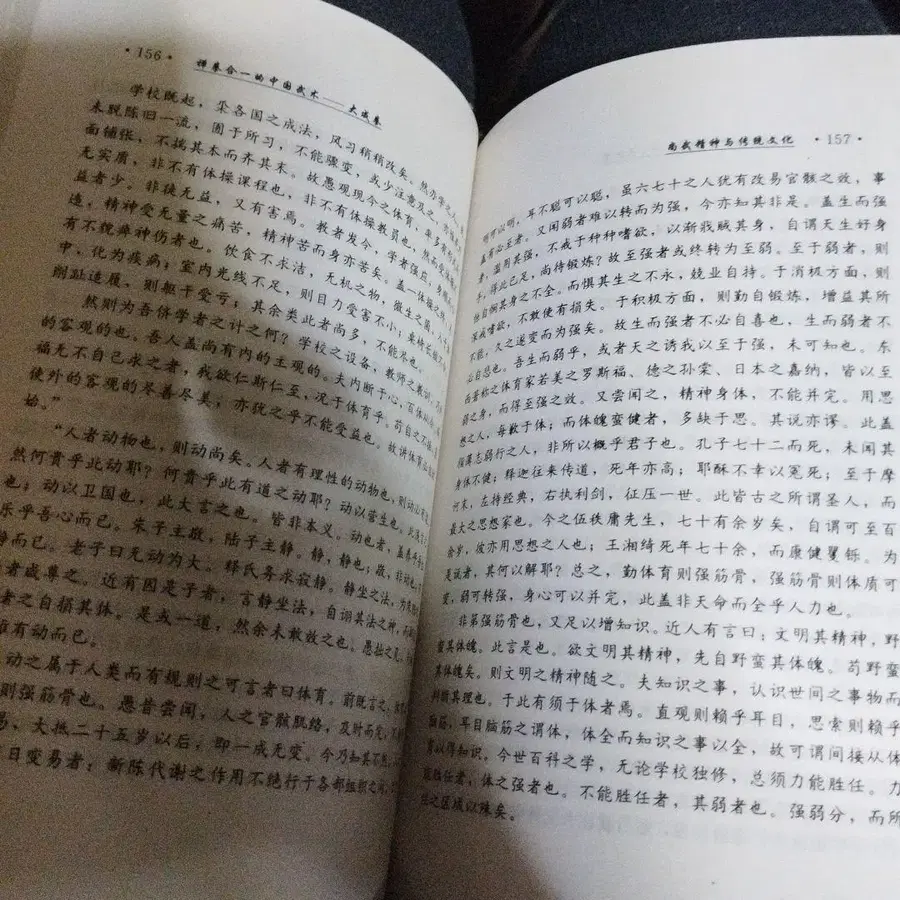 ·156·
禅拳合一的中国武术——大成拳
学校既起，采各国之成法，风习稍稍改矣。然办学之人，
未脱陈旧一流，囿于所习，不能骤变，或少注意及之，
面铺张，不揣其本而齐其末。故愚观现今之体育，率多有形式而
无实质。非不有体操课程也，非不有体操教员也，然而受体操之
益者少。非徒无益，又有害焉。教者发令，学者强应，身顺
违，精神受无量之痛苦，精神苦而身亦苦矣。盖一体操之
有不貌瘁神伤者也。饮食不求洁，无机之物，微生之菌，入于
中，化为疾病；室内光线不足，则目力受害不小；桌椅长短
削趾适履，则躯干受亏；其余类此者尚多，不能尽也。
然则为吾侪学者之计之何？学校之设备，教师之教训，
的客观的也。吾人盖尚有内的主观的。夫内断于心，百体从令。
福无不自己求之者，我欲仁斯仁至，况于体育乎。苟自之不
使外的客观的尽善尽美，亦犹之乎不能受益也。故讲体育必
始。”
“人者动物也，则动尚矣。人者有理性的动物也，则动
然何贵乎此动耶？何贵乎此有道之动耶？动以营生也，
也；动以卫国也，此大言之也。皆非本义。动也者，盖养乎
乐乎吾心而已。朱子主敬，陆子主静。静，静也；敬，非动也，
静而已。老子曰无动为大。释氏务求寂静。静坐之法，为
者咸尊之。近有因是子者，言静坐法，自诩其法之神，而
者之自损其体。是或一道，然余未敢效之也。愚拙之见，
惟有动而已。
动之属于人类而有规则之可言者曰体育。前既言之，
则强筋骨也。愚昔尝闻，人之官骸肌络，及时而
易，大抵二十五岁以后，即一成无变。今乃知其不然，
日变易者：新陈代谢之作用不绝行于各部组织之间，
尚武精神与传统文化
·157·
明可以明，耳不聪可以聪，虽六七十之人犹有改易官骸之效，事
盖有必至者。又闻弱者难以转而为强，今亦知其非是。盖生而强
者，滥用其强，不戒于种种嗜欲，以渐戕贼其身，自谓天生好身
手，得此已足，尚待锻炼？故至强者或终转为至弱。至于弱者，则
恒自悯其身之不全。而惧其生之不永，兢业自持。于消极方面，则
深戒嗜欲，不敢使有损失。于积极方面，则勤自锻炼，增益其所
不能，久之遂变而为强矣。故生而强者不必自喜也，生而弱者不
必自悲也。吾生而弱乎，或者天之诱我以至于强，未可知也。东
西著称之体育家若美之罗斯福、德之孙棠、日本之嘉纳，皆以至
弱之身，而得至强之效。又尝闻之，精神身体，不能并完。用思
想之人，每歉于体；而体魄蛮健者，多缺于思。其说亦谬。此盖
指薄志弱行之人，非所以概乎君子也。孔子七十二而死，未闻其
身体不健；释迦往来传道，死年亦高；耶酥不幸以冤死；至于摩
诃末，左持经典，右执利剑，征压一世。此皆古之所谓圣人，而
最大之思想家也。今之伍秩庸先生，七十有余岁矣，自谓可至百
余岁，彼亦用思想之人也；王湘绮死年七十余，而康健矍铄。为
是说者，其何以解耶？总之，勤体育则强筋骨，强筋骨则体质可
变，弱可转强，身心可以并完，此盖非天命而全乎人力也。
非第强筋骨也，又足以增知识。近人有言曰：文明其精神，野
蛮其体魄。此言是也。欲文明其精神，先自野蛮其体魄。苟野蛮
其体魄矣。则文明之精神随之。夫知识之事，认识世间之事物而
判断其理也。于此有须于体者焉。直观则赖乎耳目，思索则赖乎
脑筋，耳目脑筋之谓体，体全而知识之事以全，故可谓间接从体
育以得知识。今世百科之学，无论学校独修，总须力能胜任。力
能胜任者，体之强者也。不能胜任者，其弱者也。强弱分，而所
任之区域以殊矣。